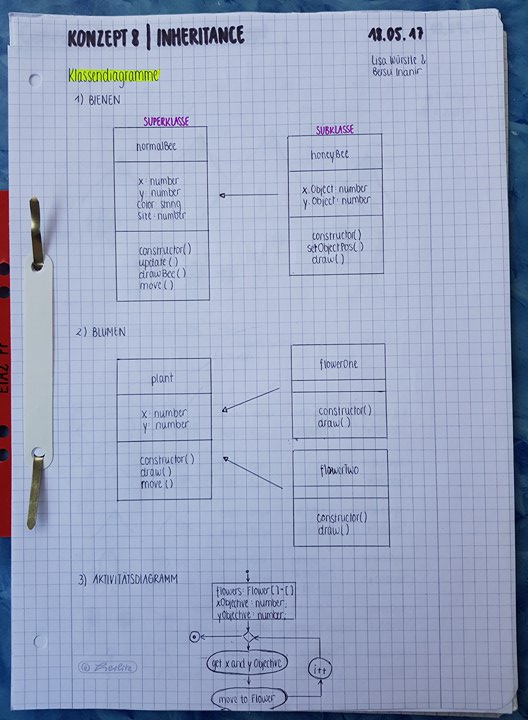 KONZEPT 8 | INHERITANCE
18.05.17
Lisa Würstle &
Beisu Inanir
Klassendiagramme
1) BIENEN
SUPERKLASSE
normalBee
x: number
y: number
color: string
size: number
constructor()
update()
drawBee()
move()
SUBKLASSE
honeyBee
x.Object: number
y.Object: number
constructor()
setObjectPos()
draw()
2) BLUMEN
plant
x: number
y: number
constructor()
draw()
move()
flowerOne
constructor()
draw()
flowerTwo
constructor()
draw()
3) AKTIVITÄTSDIAGRAMM
flowers: Flower[]=[]
xObjective: number;
yObjective: number;
get x and y Objective
i++
move to Flower